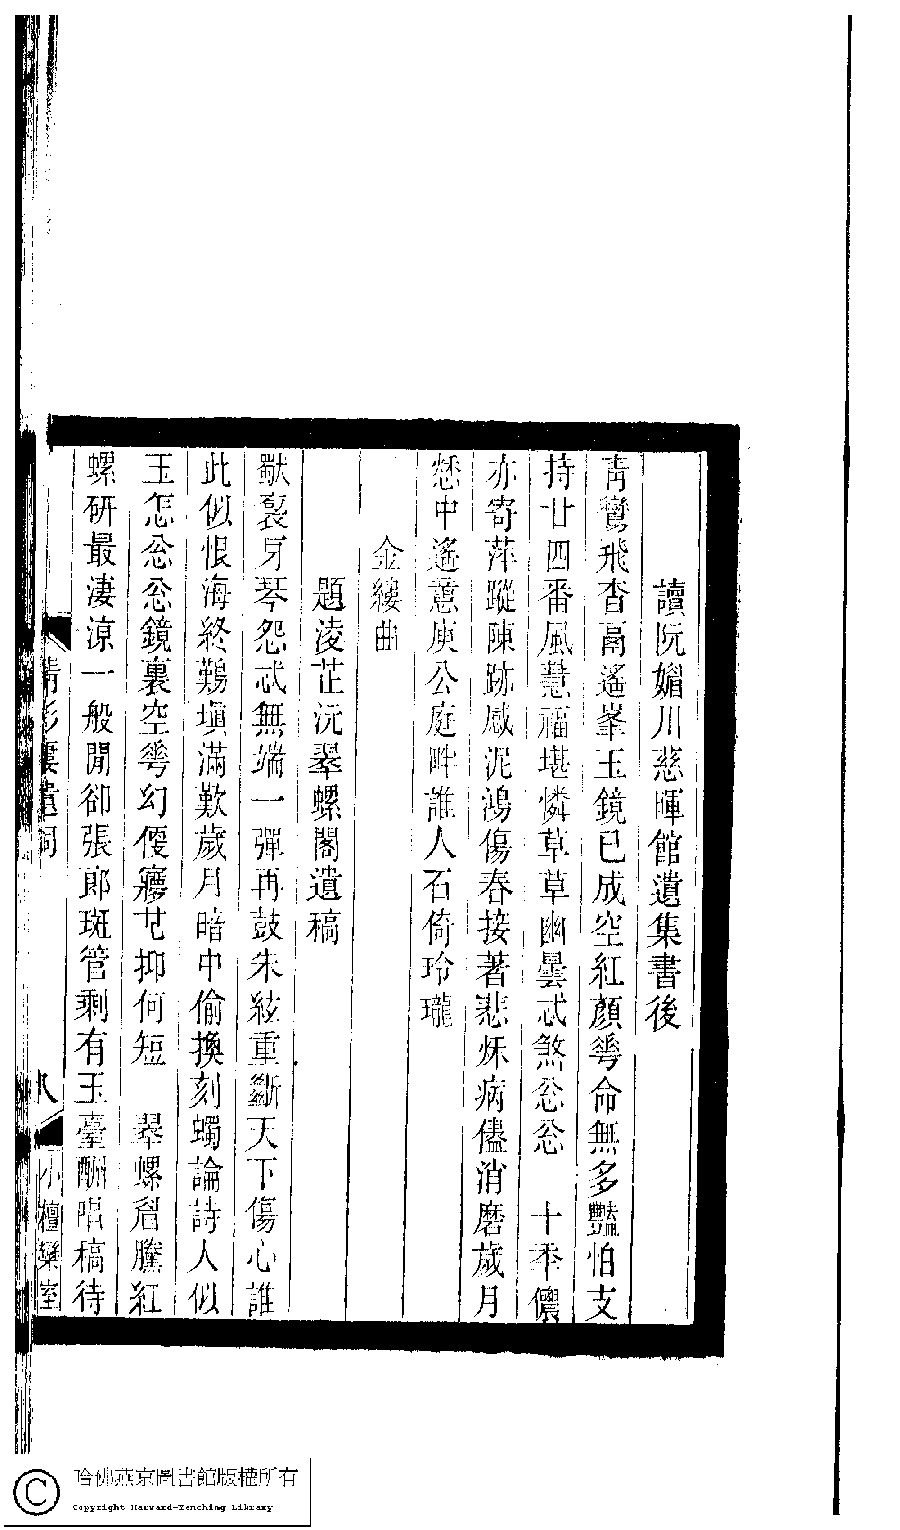 讀阮媚川慈暉館遺集書後
青鸞飛杳鬲遙峯玉鏡已成空紅顏蕚命無多豔怕支
持廿四番風慧福堪憐草草幽曇忒煞忩忩　十秊儂
亦寄萍蹤陳跡感泥鴻傷春接著悲炢病儘消磨歲月
愁中遙薏庾公庭畔誰人石倚玲瓏
金縷曲
題淩芷沅翠螺閣遺稿
猒褭牙琴怨忒無端一彈再鼓朱絃重斷天下傷心誰
此似恨海終難塡滿歎歲月暗中偷換刻蠋論詩人似
玉怎忩忩鏡裏空蕚幻偃㝱芯抑何短　翠螺眉騰紅
螺研最淒涼一般閒卻張郎斑管剩有玉臺酬唱稿待
影樓遺詞
八
小檀欒室
哈佛燕京圖書館版權所有
Copyright Harvard-Yenching Library